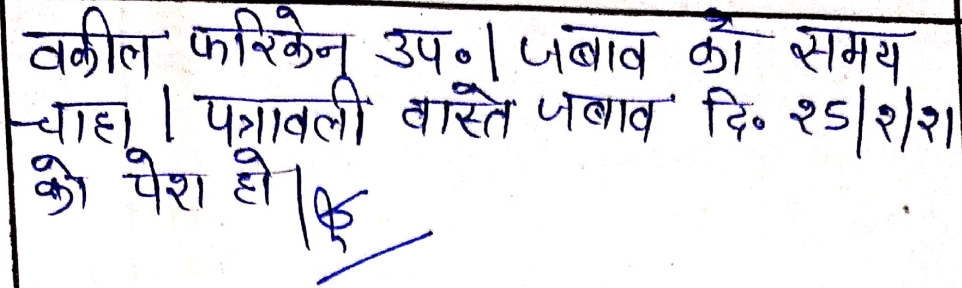 वकील फरिकेन उप०। जबाव को समय
चाहा। पत्रावली वास्ते जबाव दि० २५/२/२१
को पेश हो।